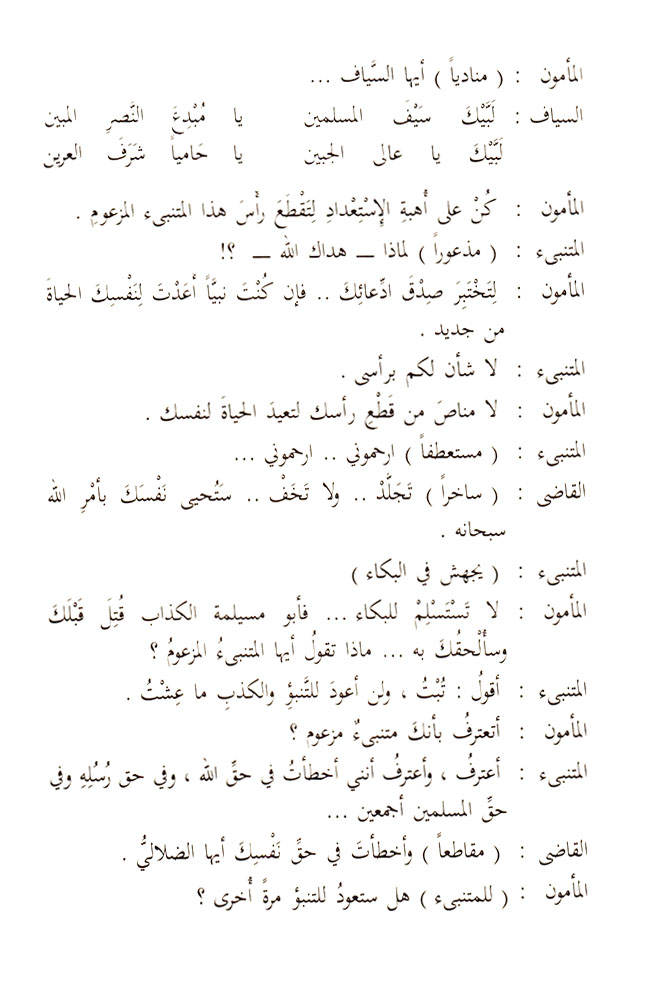 المأمون : ( منادياً ) أيها السَّياف ...
السياف : لَبَّيْكَ سَيْفَ المسلمين يا مُبْدِعَ النَّصرِ المبين
لَبَّيْكَ يا عالى الجبين يا حَامياً شَرَفَ العرين
المأمون : كُنْ على أُهبةِ الإِسْتِعْدادِ لِتَقْطَعَ رأْسَ هذا المتنبىء المزعومِ .
المتنبىء : ( مذعوراً ) لماذا ــ هداك الله ــ ؟!
المأمون : لِتَخْتَبِرَ صِدْقَ ادِّعائِكَ .. فإن كُنْتَ نبيَّاً أعَدْتَ لِنَفْسِكَ الحياةَ
من جديد .
المتنبىء : لا شأن لكم برأسى .
المأمون : لا مناصَ من قَطْعِ رأسك لتعيدَ الحياةَ لنفسك .
المتنبىء : ( مستعطفاً ) ارحموني .. ارحموني ...
القاضى : ( ساخراً ) تَجَلَّدْ .. ولا تَخَفْ .. سَتُحيى نَفْسَكَ بأمْرِ الله
سبحانه .
المتنبىء : ( يجهش في البكاء )
المأمون : لا تَسْتَسْلِمْ للبكاء ... فأبو مسيلمة الكذاب قُتِلَ قَبْلَكَ
وسأُلْحقُكَ به ... ماذا تقولُ أيها المتنبىءُ المزعومُ ؟
المتنبىء : أقولُ : تُبْتُ ، ولن أعودَ للتَّنبؤِ والكذبِ ما عِشْتُ .
المأمون : أتعترفُ بأنكَ متنبىءٌ مزعوم ؟
المتنبىء : أعترفُ ، وأعترفُ أنني أخطأتُ في حقِّ الله ، وفي حق رُسُلِهِ وفي
حقِّ المسلمين أجمعين ...
القاضى : ( مقاطعاً ) وأخطأتَ في حقِّ نَفْسِكَ أيها الضلاليُّ .
المأمون : ( للمتنبىء ) هل ستعودُ للتنبؤ مرةً أُخرى ؟